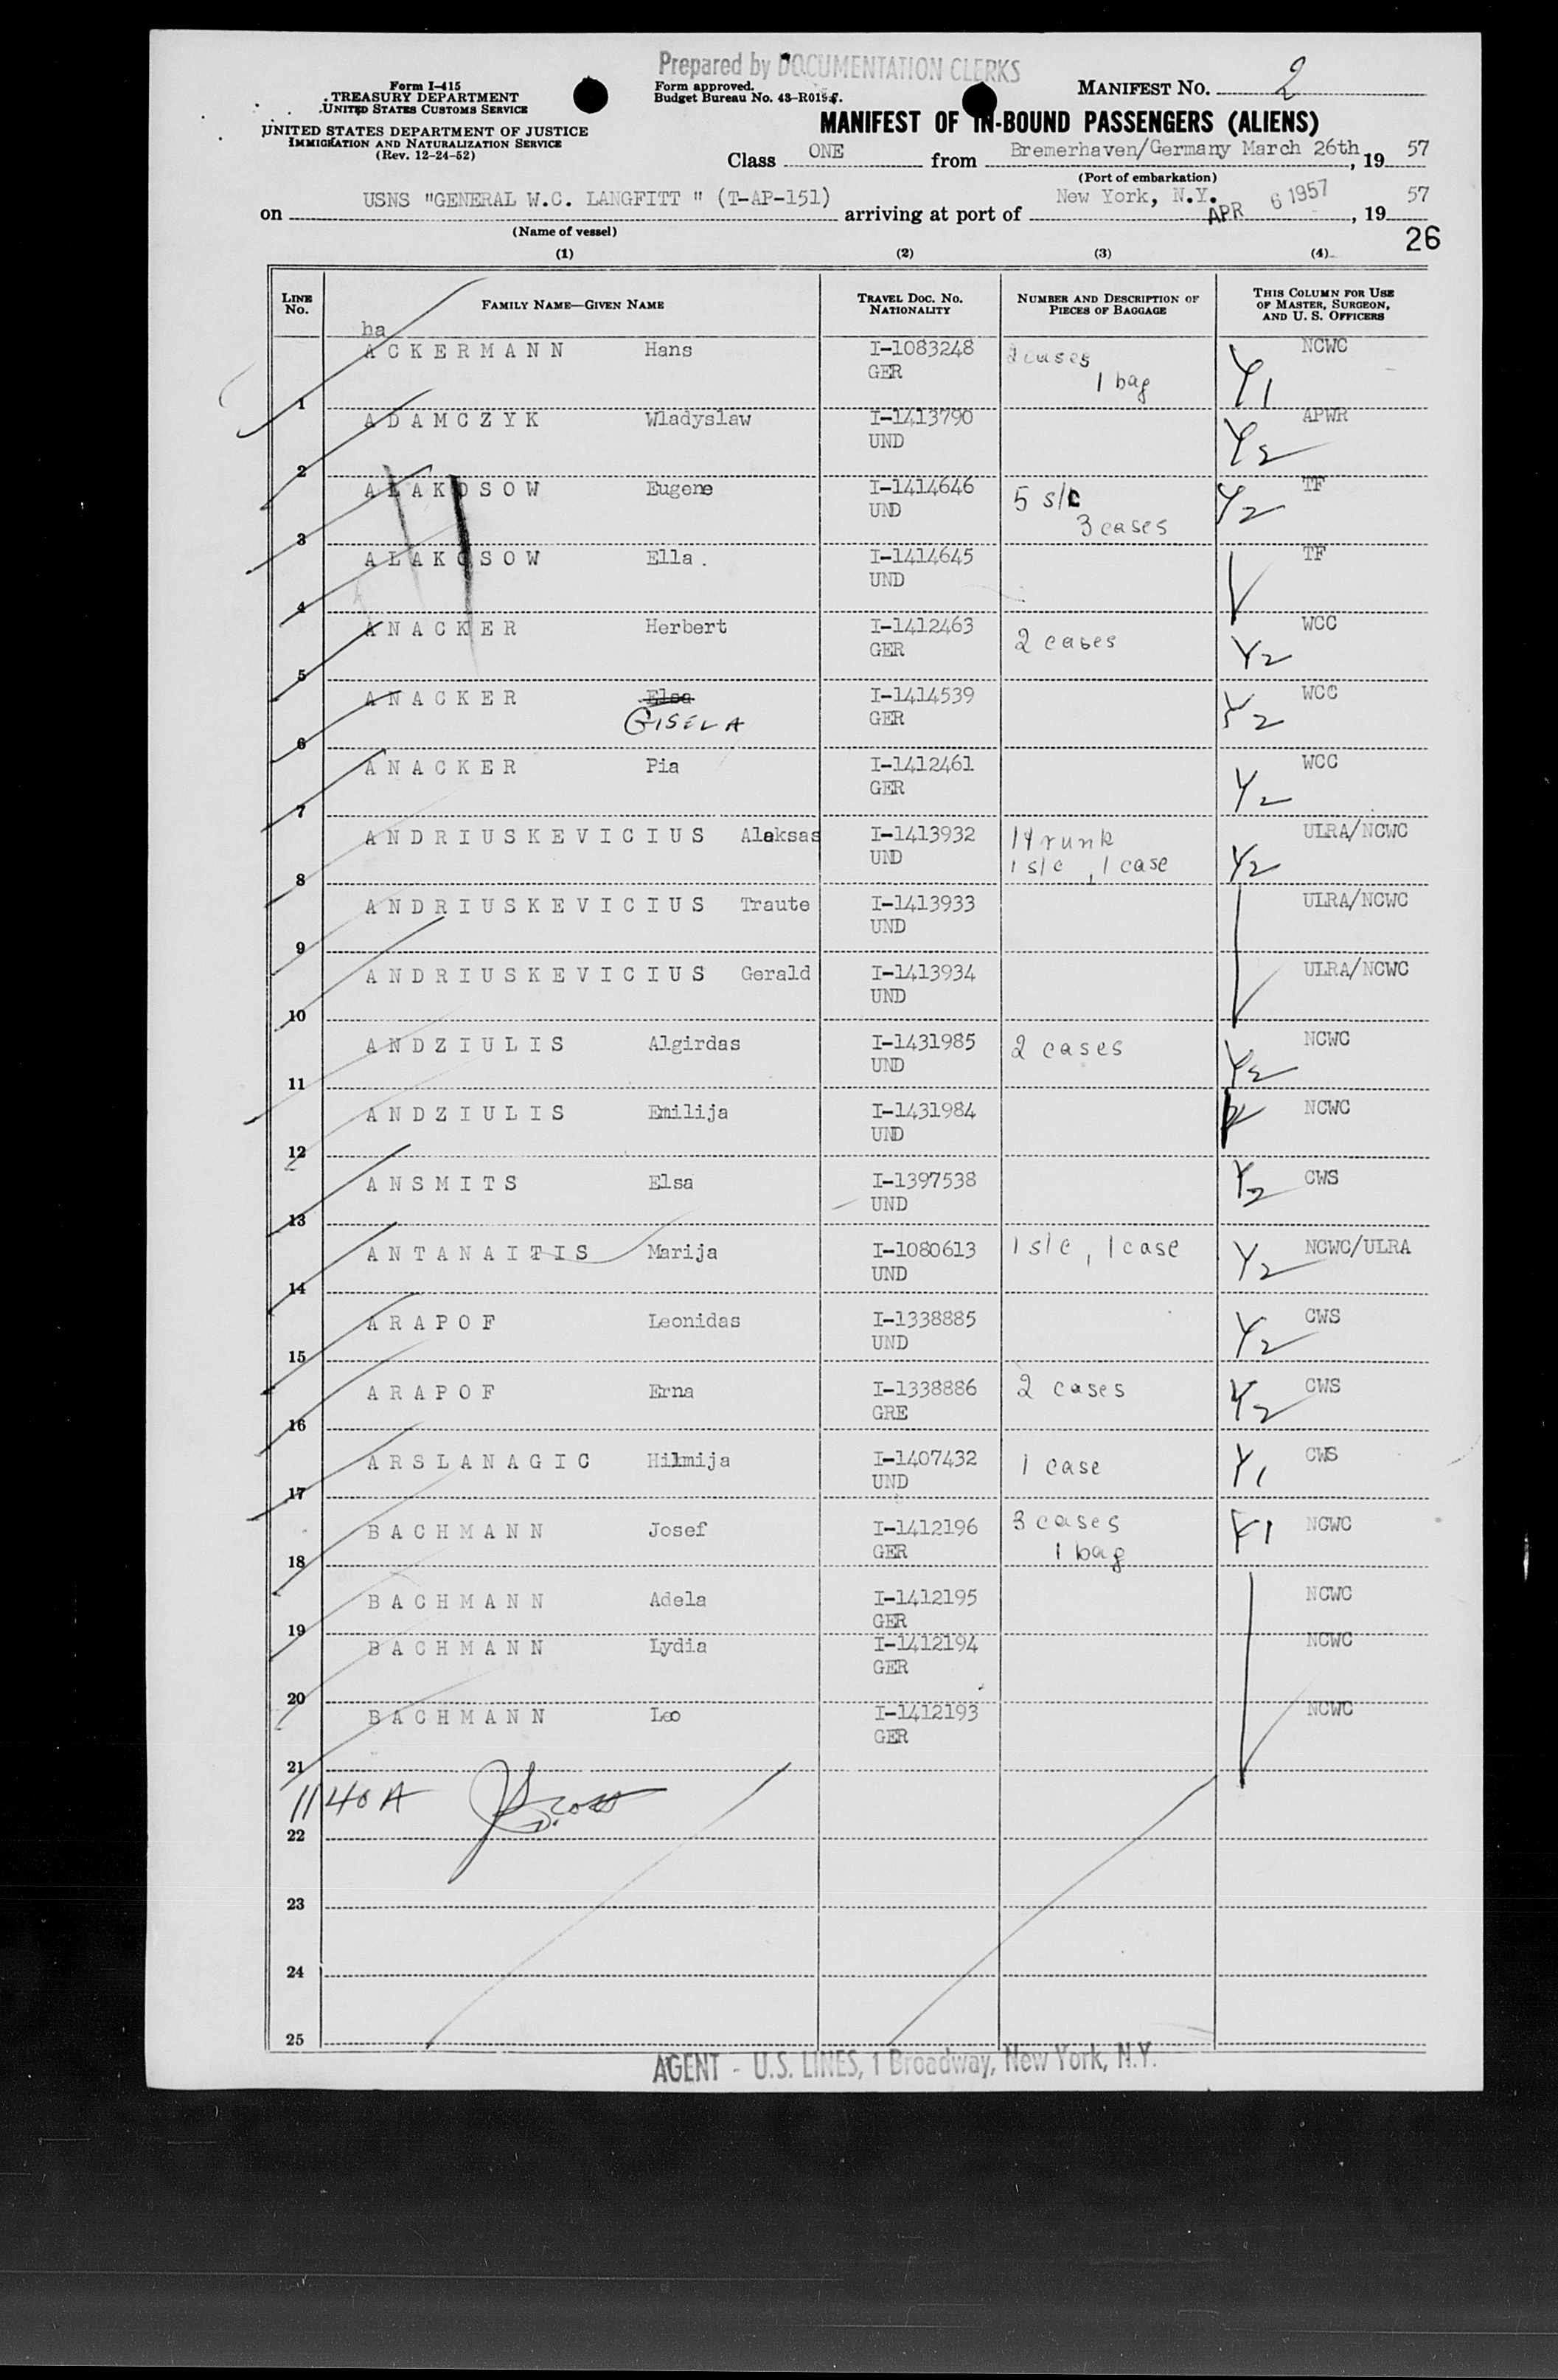 Prepared by DOCUMENTATION CLERKS
Form I-415
TREASURY DEPARTMENT
UNITED STATES CUSTOMS SERVICE
UNITED STATES DEPARTMENT OF JUSTICE
IMMIGRATION AND NATURALIZATION SERVICE
(Rev. 12-24-52)
Form approved.
Budget Bureau No. 43-R015
MANIFEST NO. 2
MANIFEST OF IN-BOUND PASSENGERS (ALIENS)
Class ONE from Bremerhaven/Germany March 26th, 19 57
(Port of embarkation)
on USNS "GENERAL W.C. LANGFITT " (T-AP-151) arriving at port of New York, N.Y. APR 6 1957, 19 57
(Name of vessel)
26
(1) (2) (3) (4)
LINE NO. FAMILY NAME—GIVEN NAME TRAVEL DOC. NO. NATIONALITY NUMBER AND DESCRIPTION OF PIECES OF BAGGAGE THIS COLUMN FOR USE OF MASTER, SURGEON, AND U. S. OFFICERS
ha
A C K E R M A N N Hans I-1083248 2 cases NCWC
1 GER 1 bag Y1
A D A M C Z Y K Wladyslaw I-1413790 APWR
2 UND Y2
A L A K O S O W Eugene I-1414646 5 s/c TF
3 UND 3 cases Y2
A L A K O S O W Ella . I-1414645 TF
4 UND
A N A C K E R Herbert I-1412463 2 cases WCC
5 GER Y2
A N A C K E R Elsa I-1414539 WCC
6 GISELA GER Y2
A N A C K E R Pia I-1412461 WCC
7 GER Y2
A N D R I U S K E V I C I U S Aleksas I-1413932 1 trunk ULRA/NCWC
8 UND 1 s/c , 1 case Y2
A N D R I U S K E V I C I U S Traute I-1413933 ULRA/NCWC
9 UND
A N D R I U S K E V I C I U S Gerald I-1413934 ULRA/NCWC
10 UND
A N D Z I U L I S Algirdas I-1431985 2 cases NCWC
11 UND Y2
A N D Z I U L I S Emilija I-1431984 NCWC
12 UND
A N S M I T S Elsa I-1397538 Y2 CWS
13 UND
A N T A N A I T I S Marija I-1080613 1 s/c , 1 case NCWC/ULRA
14 UND Y2
A R A P O F Leonidas I-1338885 CWS
15 UND Y2
A R A P O F Erna I-1338886 2 cases CWS
16 GRE Y2
A R S L A N A G I C Hilmija I-1407432 1 case CWS
17 UND Y1
B A C H M A N N Josef I-1412196 3 cases Y1 NCWC
18 GER 1 bag
B A C H M A N N Adela I-1412195 NCWC
19 GER
B A C H M A N N Lydia I-1412194 NCWC
20 GER
B A C H M A N N Leo I-1412193 NCWC
21 GER
1140A
22
23
24
25
AGENT - U.S. LINES, 1 Broadway, New York, N.Y.